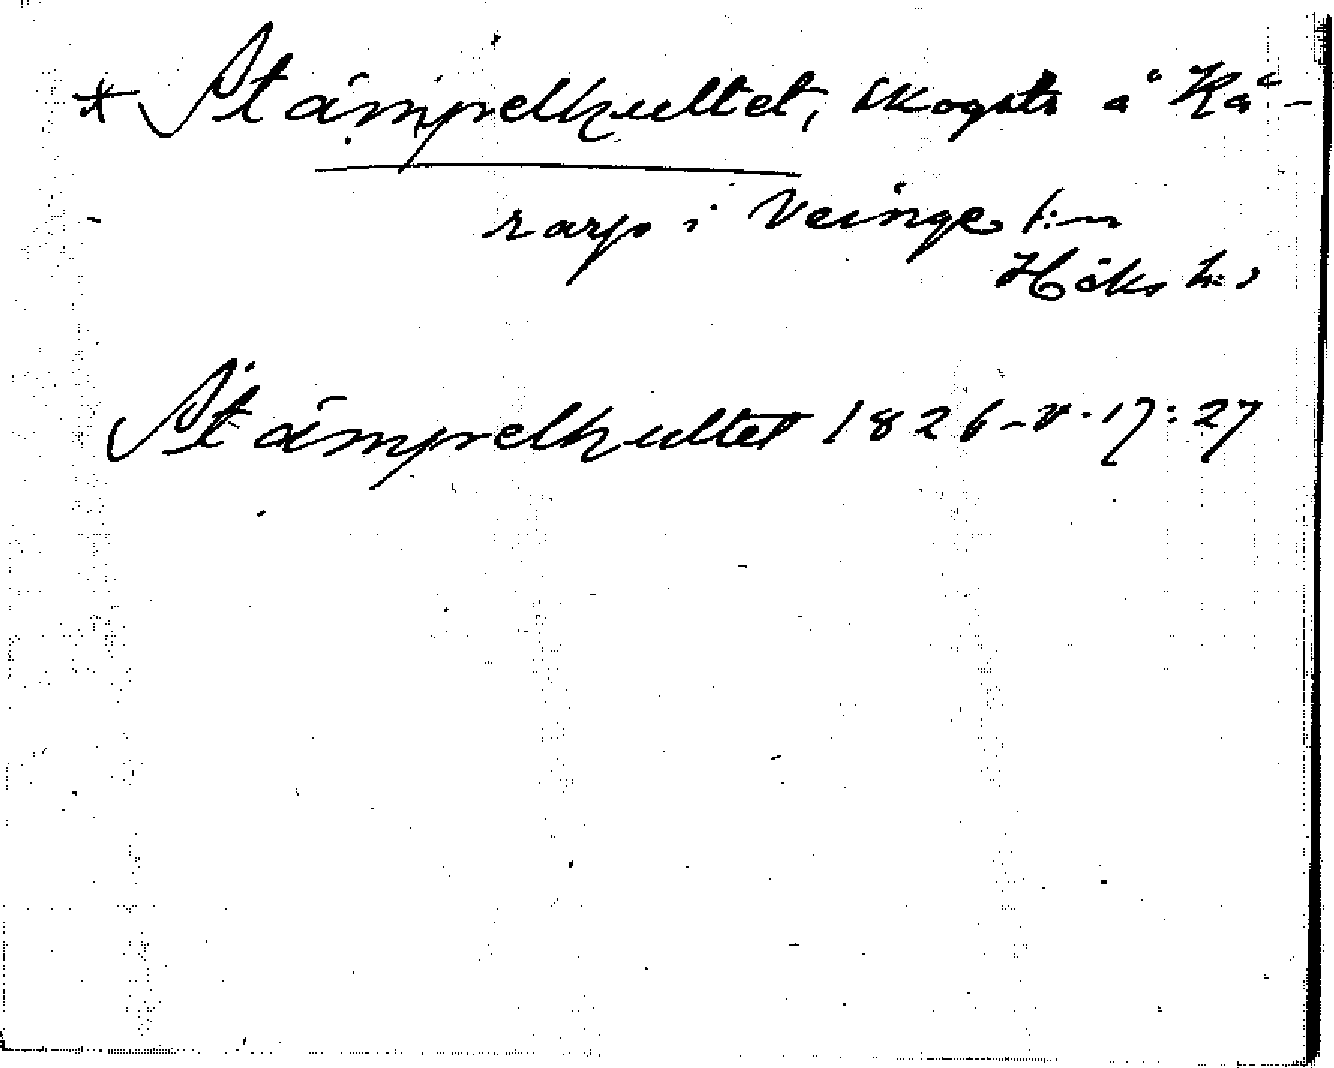 * Stämpelhultet, skogstr å Kå-
rarp i Veinge s:n
Höks h:d
Stämpelhultet 1826-V-17:27